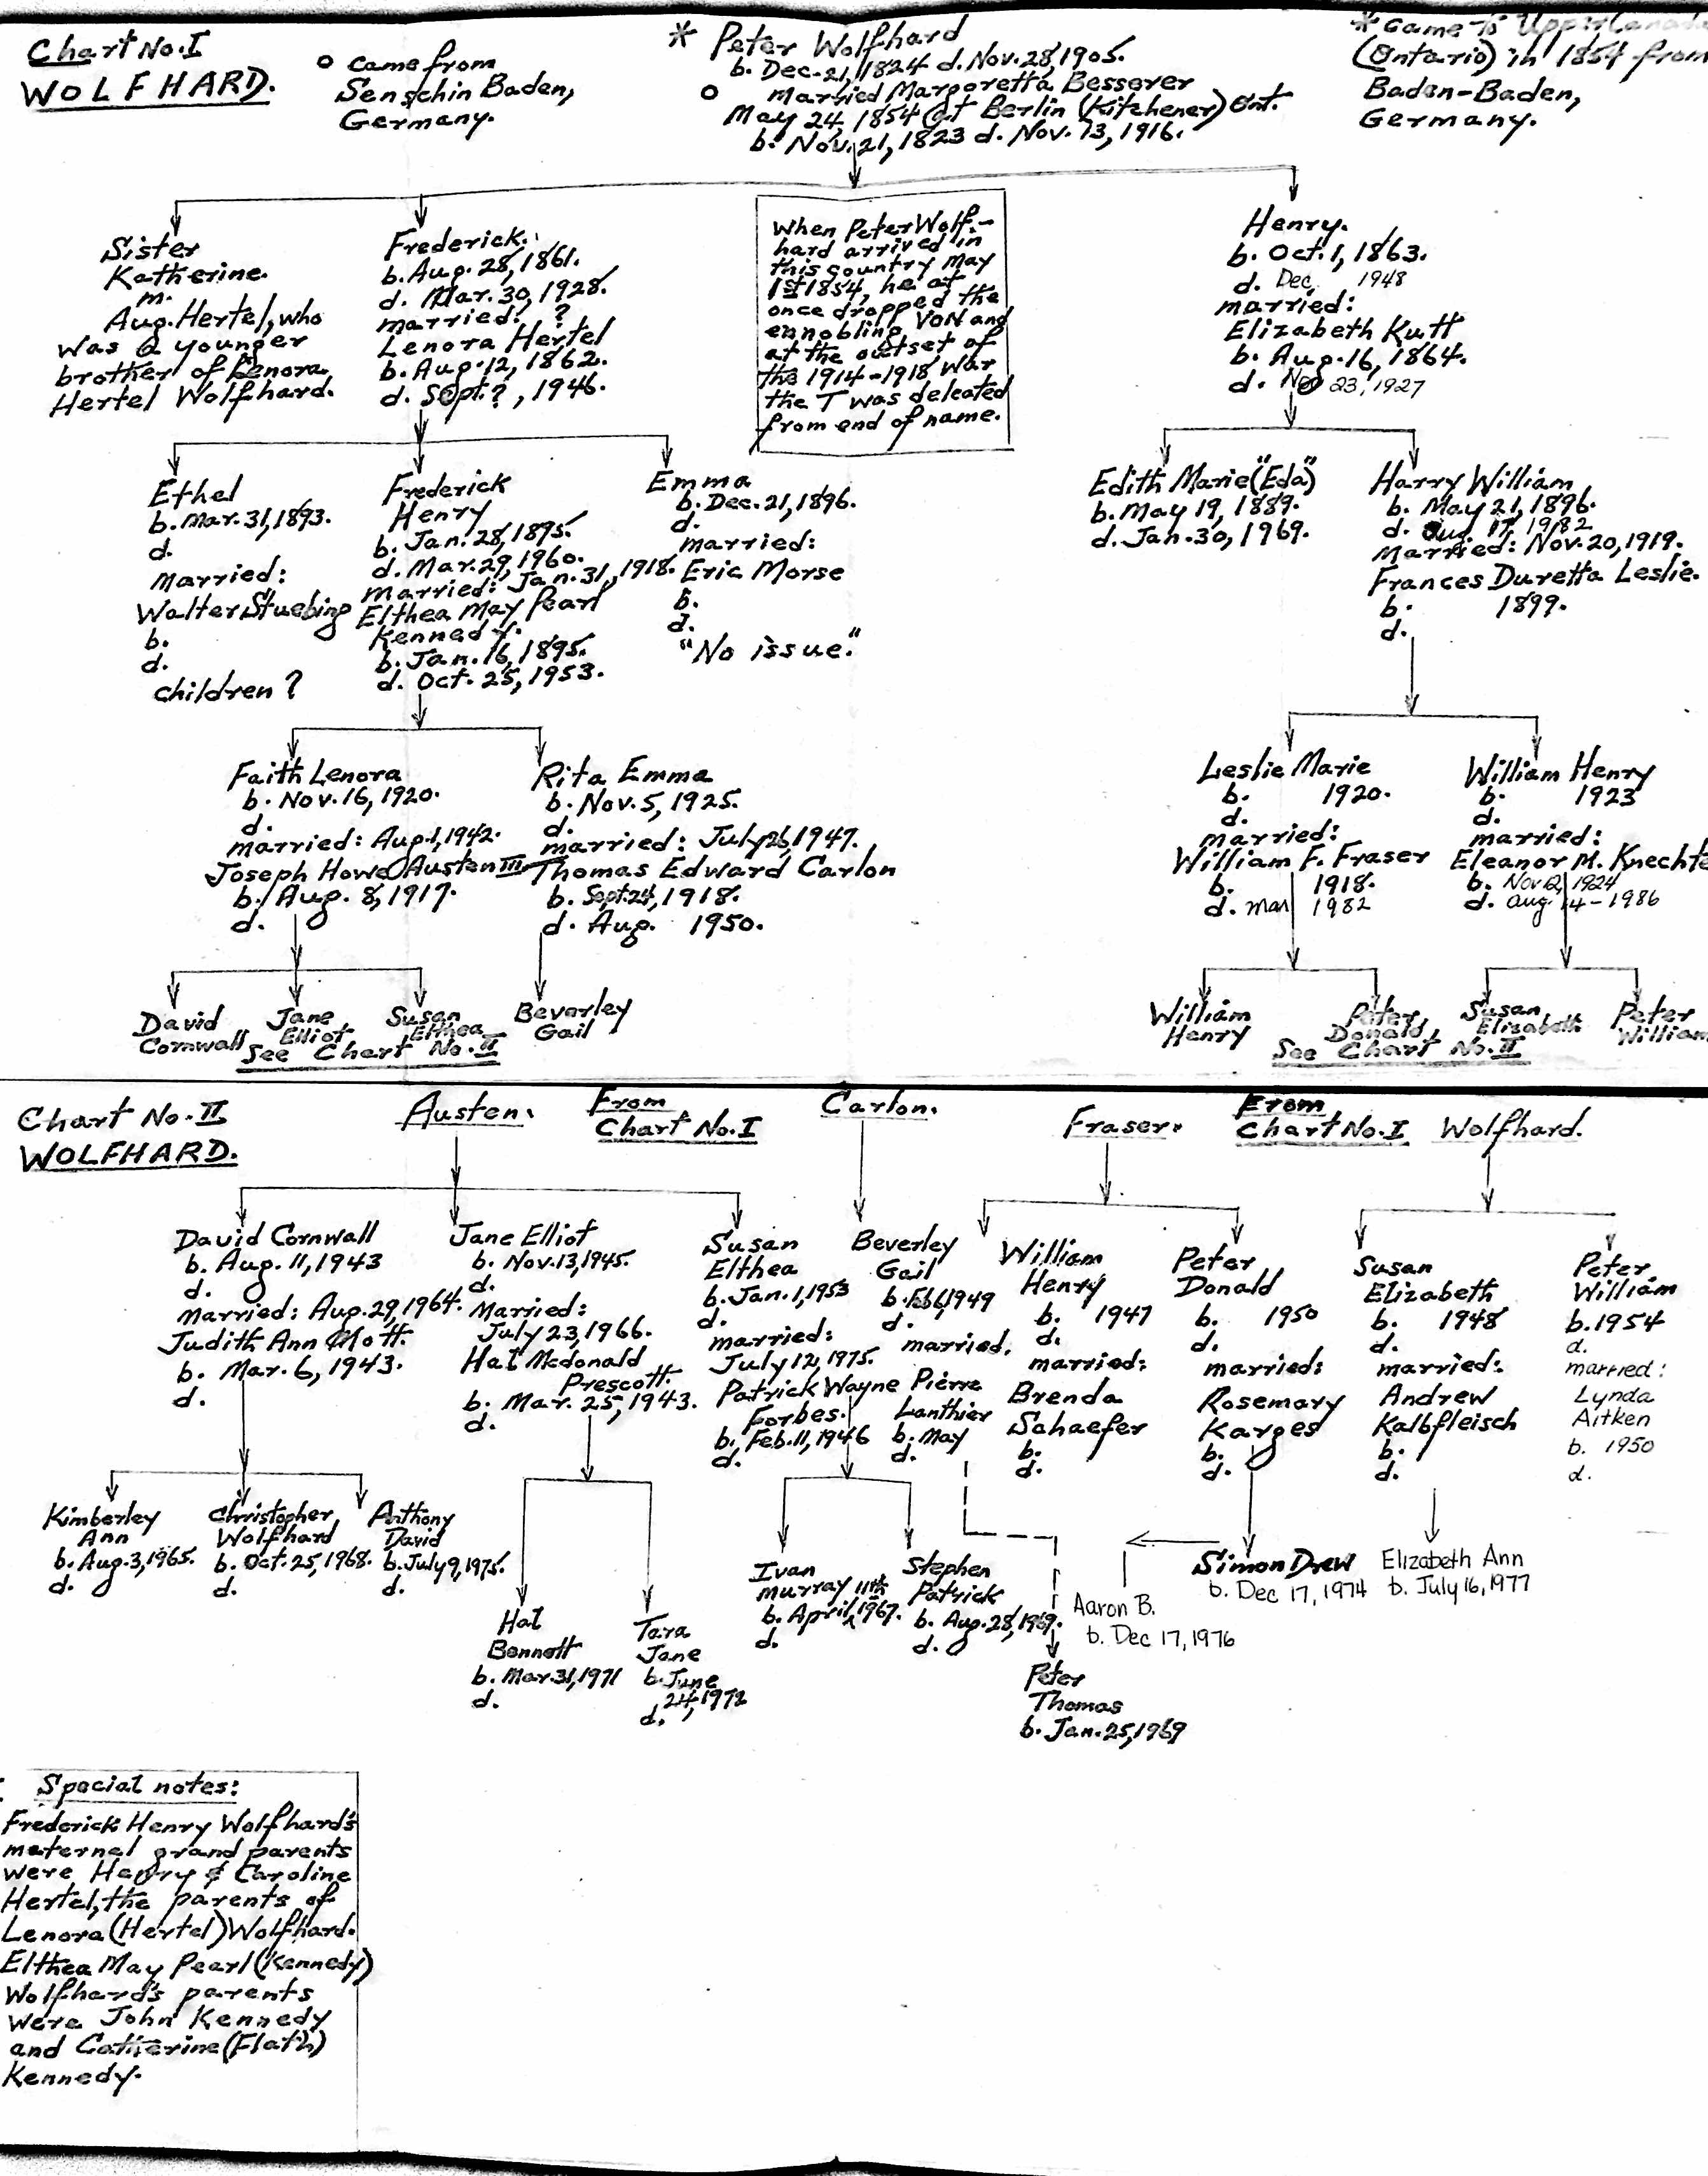 Chart No. I
WOLFHARD.
o came from
Senschin Baden,
Germany.
* Peter Wolfhard
b. Dec. 21, 1824 d. Nov. 28, 1905.
o married Margoretta Besserer
May 24, 1854 at Berlin (Kitchener) Ont.
b. Nov. 21, 1823 d. Nov. 13, 1916.
* Came to Upper Canada
(Ontario) in 1854 from
Baden-Baden,
Germany.
Sister
Katherine.
m.
Aug. Hertel, who
was a younger
brother of Lenora
Hertel Wolfhard.
Frederick.
b. Aug. 28, 1861.
d. Mar. 30, 1928.
married: ?
Lenora Hertel
b. Aug. 12, 1862.
d. Sept. ?, 1946.
When Peter Wolf-
hard arrived in
this country May
1st 1854, he at
once dropped the
ennobling VON and
at the outset of
the 1914-1918 War
the T was deleated
from end of name.
Henry.
b. Oct. 1, 1863.
d. Dec 1948
married:
Elizabeth Kutt
b. Aug. 16, 1864.
d. Nov 23, 1927
Ethel
b. Mar. 31, 1893.
d.
married:
Walter Stuebing
b.
d.
children?
Frederick
Henry
b. Jan. 28, 1895.
d. Mar. 29, 1960.
married: Jan. 31, 1918.
Elthea May Pearl
Kennedy.
b. Jan. 16, 1895.
d. Oct. 25, 1953.
Emma
b. Dec. 21, 1896.
d.
married:
Eric Morse
b.
d.
"No issue."
Edith Marie "(Eda)"
b. May 19, 1889.
d. Jan. 30, 1969.
Harry William
b. May 21, 1896.
d. Aug. 17, 1982
Married: Nov. 20, 1919.
Frances Duretta Leslie.
b. 1899.
d.
Faith Lenora
b. Nov. 16, 1920.
d.
married: Aug. 1, 1942.
Joseph Howe Austen III
b. Aug. 8, 1917.
d.
Rita Emma
b. Nov. 5, 1925.
d.
married: July 26, 1947.
Thomas Edward Carlon
b. Sept. 24, 1918.
d. Aug. 1950.
Leslie Marie
b. 1920.
d.
married:
William F. Fraser
b. 1918.
d. mar 1982
William Henry
b. 1923
d.
married:
Eleanor M. Knechte
b. Nov 2, 1924
d. Aug. 14-1986
David
Cornwall
Jane
Elliot
Susan
Elthea
See Chart No. II
Beverley
Gail
William
Henry
Peter
Donald
Susan
Elizabeth
Peter
William
See Chart No. II
Chart No. II
WOLFHARD.
Austen.
From
Chart No. I
Carlon.
Fraser.
From
Chart No. I
Wolfhard.
David Cornwall
b. Aug. 11, 1943
d.
married: Aug. 29, 1964.
Judith Ann Mott.
b. Mar. 6, 1943.
d.
Jane Elliot
b. Nov. 13, 1945.
d.
Married:
July 23, 1966.
Hal Mcdonald
Prescott.
b. Mar. 25, 1943.
d.
Susan
Elthea
b. Jan. 1, 1953
d.
married:
July 12, 1975.
Patrick Wayne
Forbes.
b. Feb. 11, 1946
d.
Beverley
Gail
b. Feb 6, 1949
d.
married.
Pierre
Lanthier
b. May
d.
William
Henry
b. 1947
d.
married:
Brenda
Schaefer
b.
d.
Peter
Donald
b. 1950
d.
married:
Rosemary
Karges
b.
d.
Susan
Elizabeth
b. 1948
d.
married:
Andrew
Kalbfleisch
b.
d.
Peter
William
b. 1954
d.
married:
Lynda
Aitken
b. 1950
d.
Kimberley
Ann
b. Aug. 3, 1965.
d.
Christopher
Wolfhard
b. Oct. 25, 1968.
d.
Anthony
David
b. July 9, 1975.
d.
Hal
Bennett
b. Mar. 31, 1971
d.
Tara
Jane
b. June
24, 1972
d.
Ivan
Murray 11th
b. April, 1967.
d.
Stephen
Patrick
b. Aug. 28, 1969.
d.
Peter
Thomas
b. Jan. 25, 1969
Aaron B.
b. Dec 17, 1976
Simon Drew
b. Dec 17, 1974
Elizabeth Ann
b. July 16, 1977
Special notes:
Frederick Henry Wolfhard's
maternal grand parents
were Henry & Caroline
Hertel, the parents of
Lenora (Hertel) Wolfhard.
Elthea May Pearl (Kennedy)
Wolfhard's parents
were John Kennedy
and Catherine (Flath)
Kennedy.